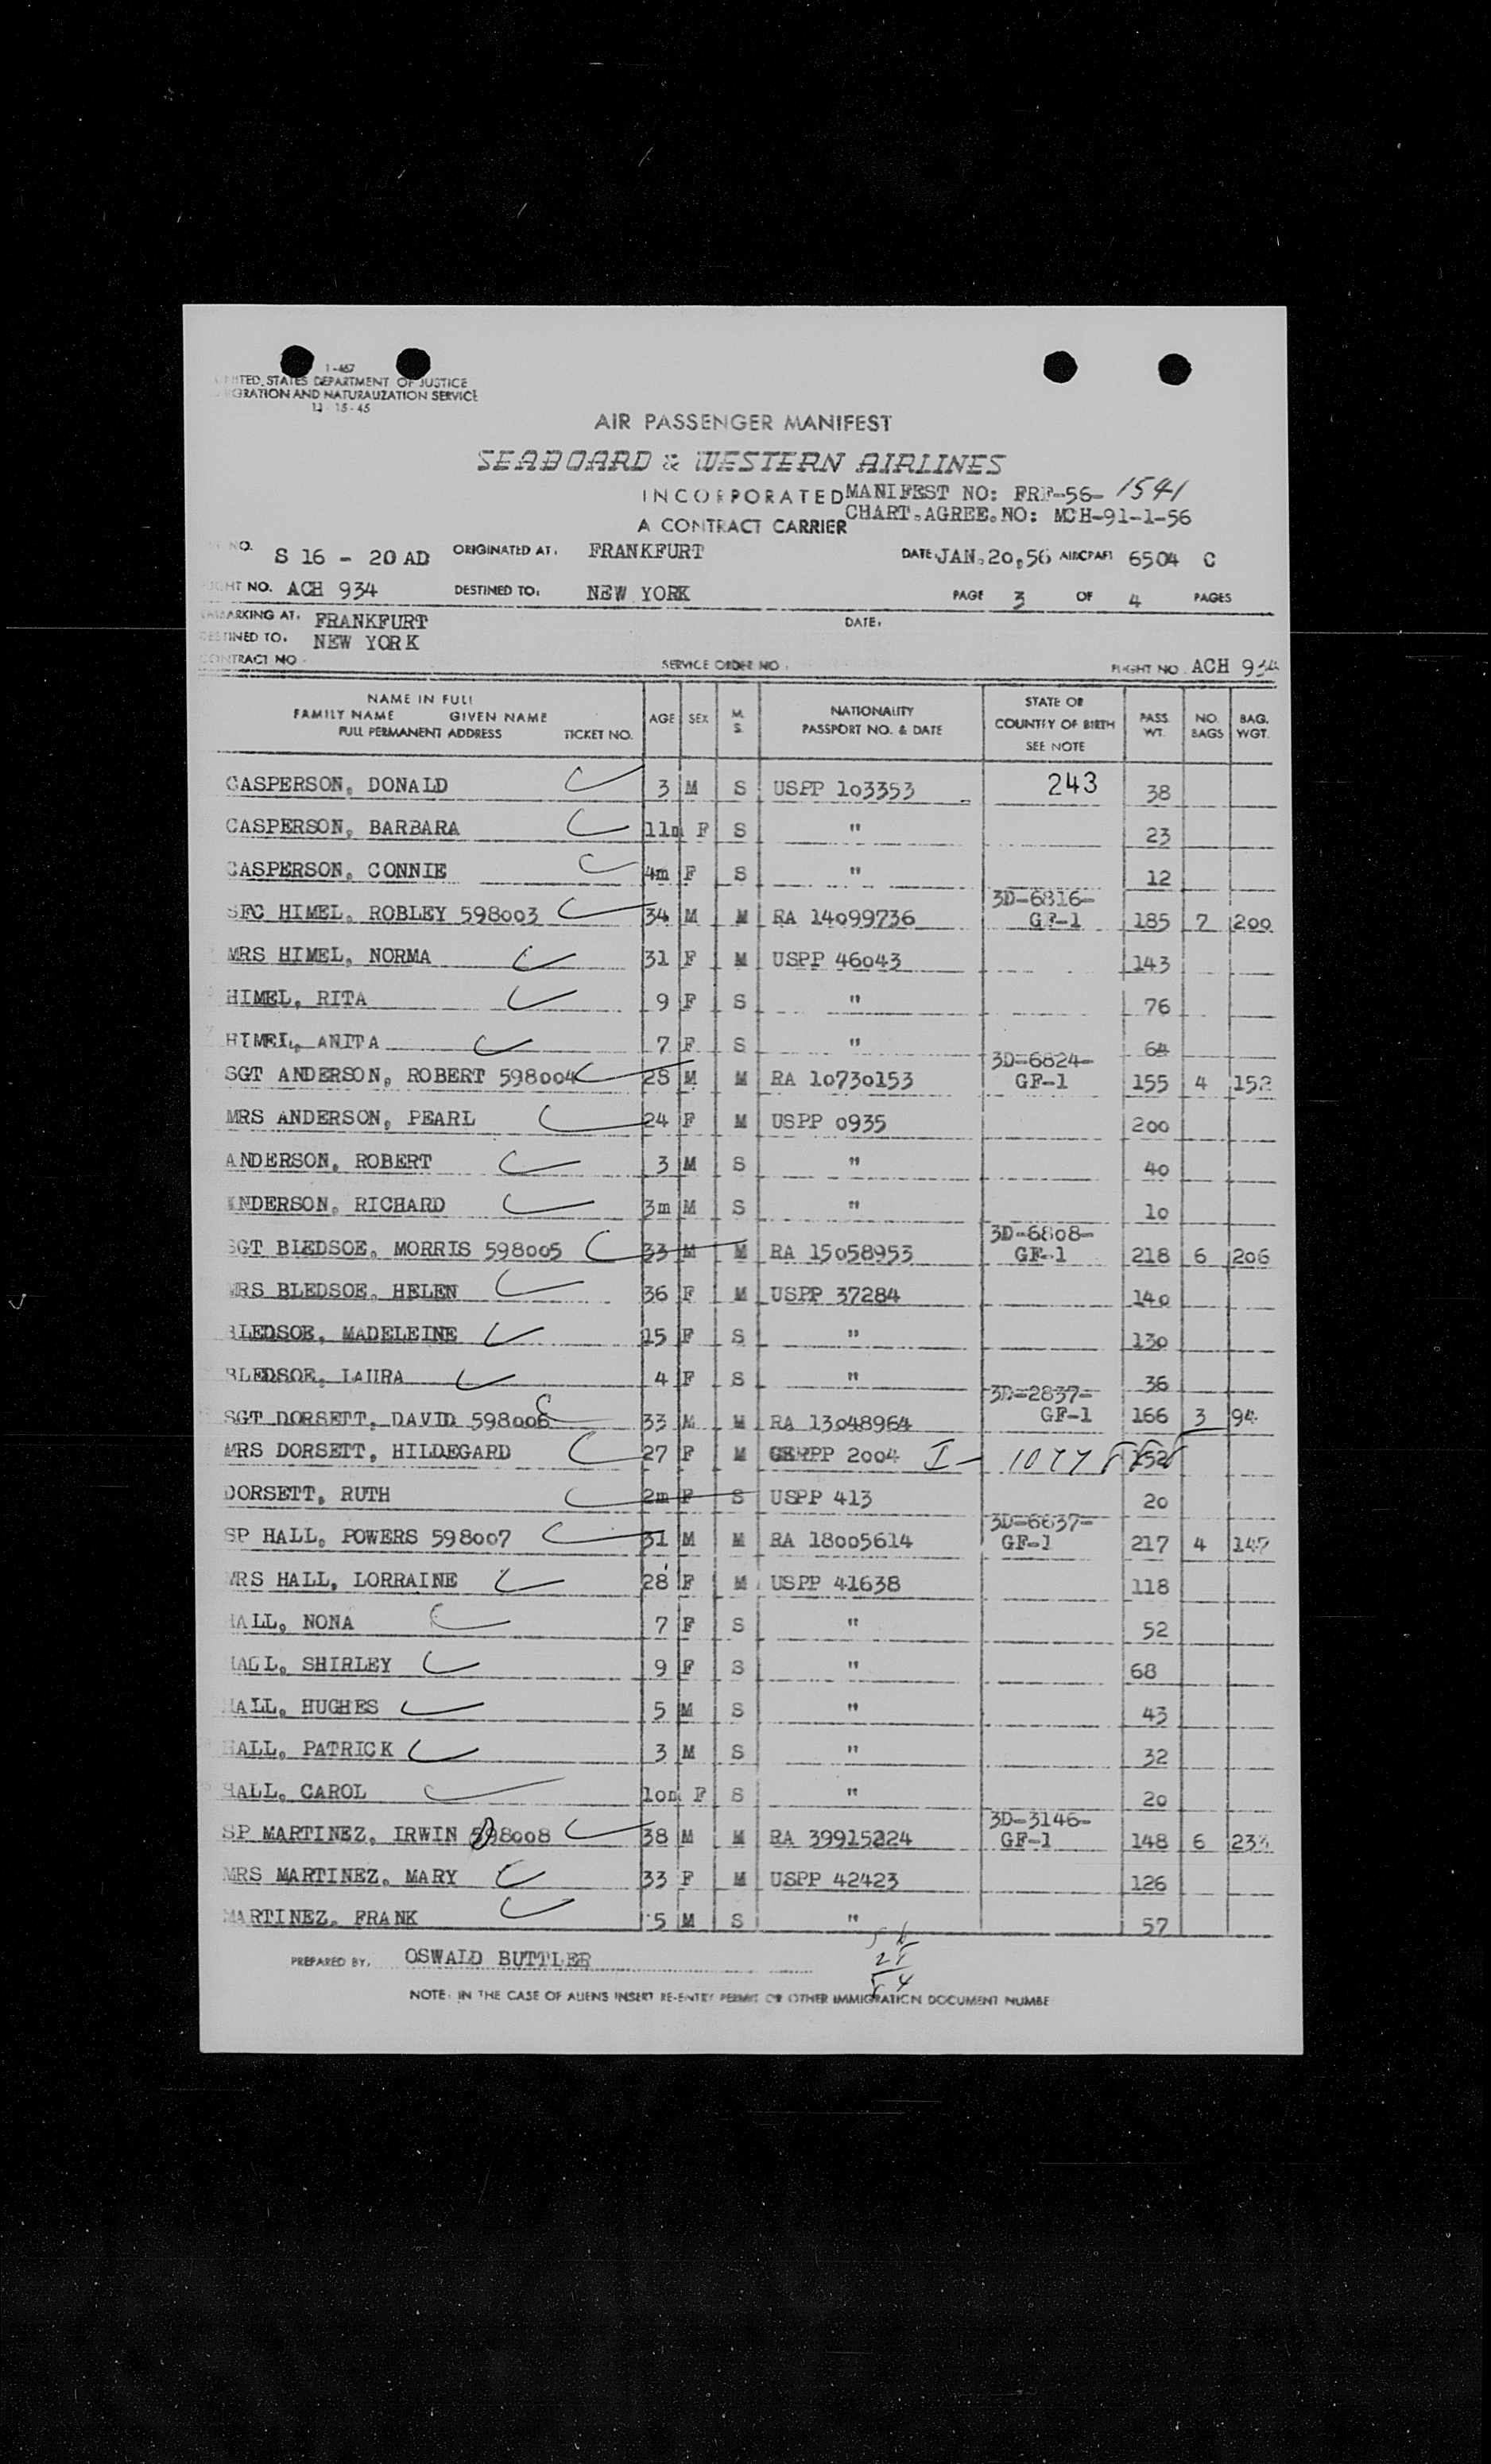 1-467
UNITED STATES DEPARTMENT OF JUSTICE
IMMIGRATION AND NATURALIZATION SERVICE
11-15-45
AIR PASSENGER MANIFEST
SEABOARD & WESTERN AIRLINES
INCORPORATED MANIFEST NO: FRF-56-1541
A CONTRACT CARRIER CHART.AGREE.NO: MCH-91-1-56
NO. S 16 - 20 AD ORIGINATED AT: FRANKFURT DATE JAN.20,56 AIRCRAFT 6504 C
FLIGHT NO. ACH 934 DESTINED TO: NEW YORK PAGE 3 OF 4 PAGES
EMBARKING AT: FRANKFURT DATE:
DESTINED TO. NEW YORK
CONTRACT NO SERVICE ORDER NO. FLIGHT NO. ACH 934
NAME IN FULL
FAMILY NAME GIVEN NAME
FULL PERMANENT ADDRESS TICKET NO. AGE SEX M. S. NATIONALITY PASSPORT NO. & DATE STATE OR COUNTRY OF BIRTH SEE NOTE PASS. WT. NO. BAGS BAG. WGT.
CASPERSON, DONALD 3 M S USPP 103353 243 38
CASPERSON, BARBARA 11m F S " 23
CASPERSON, CONNIE 4m F S " 12
SFC HIMEL, ROBLEY 598003 34 M M RA 14099736 3D-6816-GF-1 185 7 200
MRS HIMEL, NORMA 31 F M USPP 46043 143
HIMEL, RITA 9 F S " 76
HIMEL, ANITA 7 F S " 64
SGT ANDERSON, ROBERT 598004 28 M M RA 10730153 3D-6824-GF-1 155 4 152
MRS ANDERSON, PEARL 24 F M USPP 0935 200
ANDERSON, ROBERT 3 M S " 40
ANDERSON, RICHARD 3m M S " 10
SGT BLEDSOE, MORRIS 598005 33 M M RA 15058953 3D-6808-GF-1 218 6 206
MRS BLEDSOE, HELEN 36 F M USPP 37284 140
BLEDSOE, MADELEINE 15 F S " 130
BLEDSOE, LAURA 4 F S " 36
SGT DORSETT, DAVID 598006 33 M M RA 13048964 3D-2837-GF-1 166 3 94
MRS DORSETT, HILDEGARD 27 F M GERPP 2004 I- 152
DORSETT, RUTH 2m F S USPP 413 20
SP HALL, POWERS 598007 31 M M RA 18005614 3D-6637-GF-1 217 4
MRS HALL, LORRAINE 28 F M USPP 41638 118
HALL, NONA 7 F S " 52
HALL, SHIRLEY 9 F S " 68
HALL, HUGHES 5 M S " 43
HALL, PATRICK 3 M S " 32
HALL, CAROL 10m F S " 20
SP MARTINEZ, IRWIN 598008 38 M M RA 39915224 3D-3146-GF-1 148 6
MRS MARTINEZ, MARY 33 F M USPP 42423 126
MARTINEZ, FRANK 5 M S " 57
PREPARED BY: OSWALD BUTTLER
NOTE: IN THE CASE OF ALIENS INSERT RE-ENTRY PERMIT OR OTHER IMMIGRATION DOCUMENT NUMBE